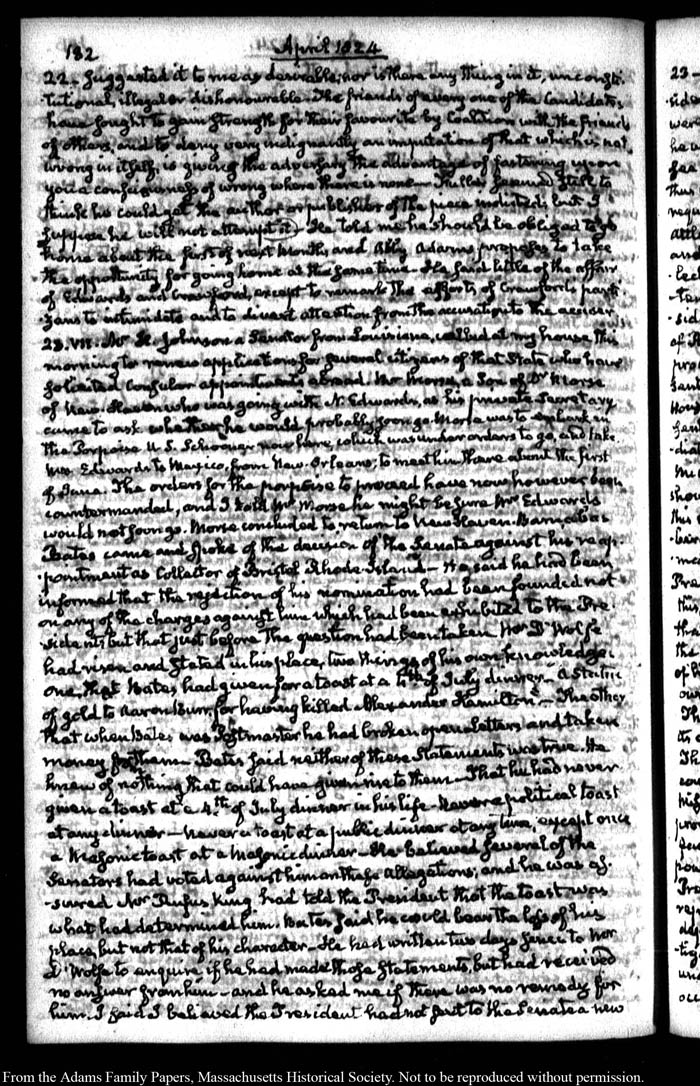 182 April 1824
22. suggested it to me as desireable; nor is there any thing in it, unconsti-
-tutional, illegal or dishonourable. The friends of every one of the Candidates
have sought to gain strength for their favourite by Coalition with the friends
of others, and to deny very indignantly an imputation of that which is not
wrong in itself, is giving the adversary the advantage of fastening upon
you a consciousness of wrong where there is none. Fuller seemed still to
think he could get the author or publisher of the piece indicted; but I
suppose he will not attempt it. He told me he should be obliged to go
home about the first of next Month, and Abby Adams proposes to take
the opportunity for going home at the same time. He said little of the affair
of Edwards and Crawford, except to remark the efforts of Crawford's parti-
-zans to intimidate and to divert attention from the accusation to the accuser
23. VII. Mr. H. Johnson a Senator from Louisiana, called at my house this
morning to renew applications for several citizens of that State who have
solicited Consular appointments abroad. Mr Morse, a Son of Dr Morse
of New-Haven who was going with N. Edwards, as his private Secretary
came to ask whether he would probably soon go. Morse was to embark in
the Porpoise U.S. Schooner now here, which was under orders to go, and take
Mr. Edwards to Mexico, from New-Orleans; to meet him there about the first
of June. The orders for the porpoise to proceed have now however been
countermanded, and I told Mr Morse he might be sure Mr Edwards
would not soon go. Morse concluded to return to New Haven. Barnabas
Bates came and spoke of the decision of the Senate against his reap-
-pointment as Collector of Bristol Rhode-Island. He said he had been
informed that the rejection of his nomination had been founded not
on any of the charges against him which had been exhibited to the Pre-
-sident; but that just before the question had been taken Mr D'Wolfe
had risen and stated in his place, two things of his own knowledge.
one, that Bates, had given for a toast at a 4th of July dinner "A statue
of gold to Aaron Burr, for having killed Alexander Hamilton" – The other
that when Bates was Postmaster he had broken open Letters and taken
money from them – Bates said neither of these Statements was true. He
knew of nothing that could have given rise to them – That he had never
given a toast at a 4th of July dinner in his life – Never a political toast
at any dinner – Never a toast at a public dinner at any time, except once
a Masonic toast at a Masonic dinner – He believed several of the
Senators had voted against him on these allegations; and he was as-
-sured Mr Rufus King had told the President that the toast was
what had determined him. Bates said he could bear the loss of his
place, but not that of his character – He had written two days since to Mr
D'Wolfe to enquire if he had made those Statements, but had received
no answer from him – and he asked me if there was no remedy for
him. I said I believed the President had not sent to the Senate a new
23
From the Adams Family Papers, Massachusetts Historical Society. Not to be reproduced without permission.